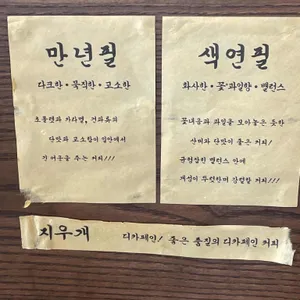 만년필
다크한 · 묵직한 · 고소한
초콜렛과 카라멜, 견과류의
단맛과 고소함이 입안에서
긴 여운을 주는 커피!!!
색연필
화사한 · 꽃과일향 · 밸런스
꽃내음과 과일을 모아놓은 듯한
산미와 단맛이 좋은 커피!
균형잡힌 밸런스 안에
개성이 뚜렷한 커피!!!
지우개
디카페인! 좋은 품질의 디카페인 커피